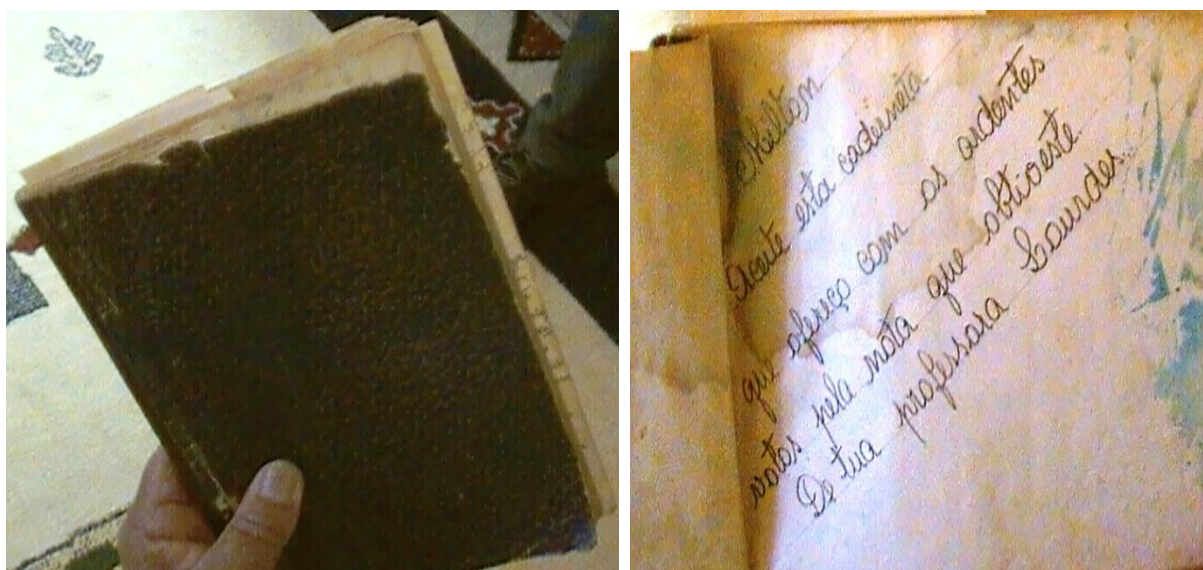 Milton
Aceite esta caderneta
que ofereço com os ardentes
votos pela nota que obtiveste.
De tua professora Lourdes.